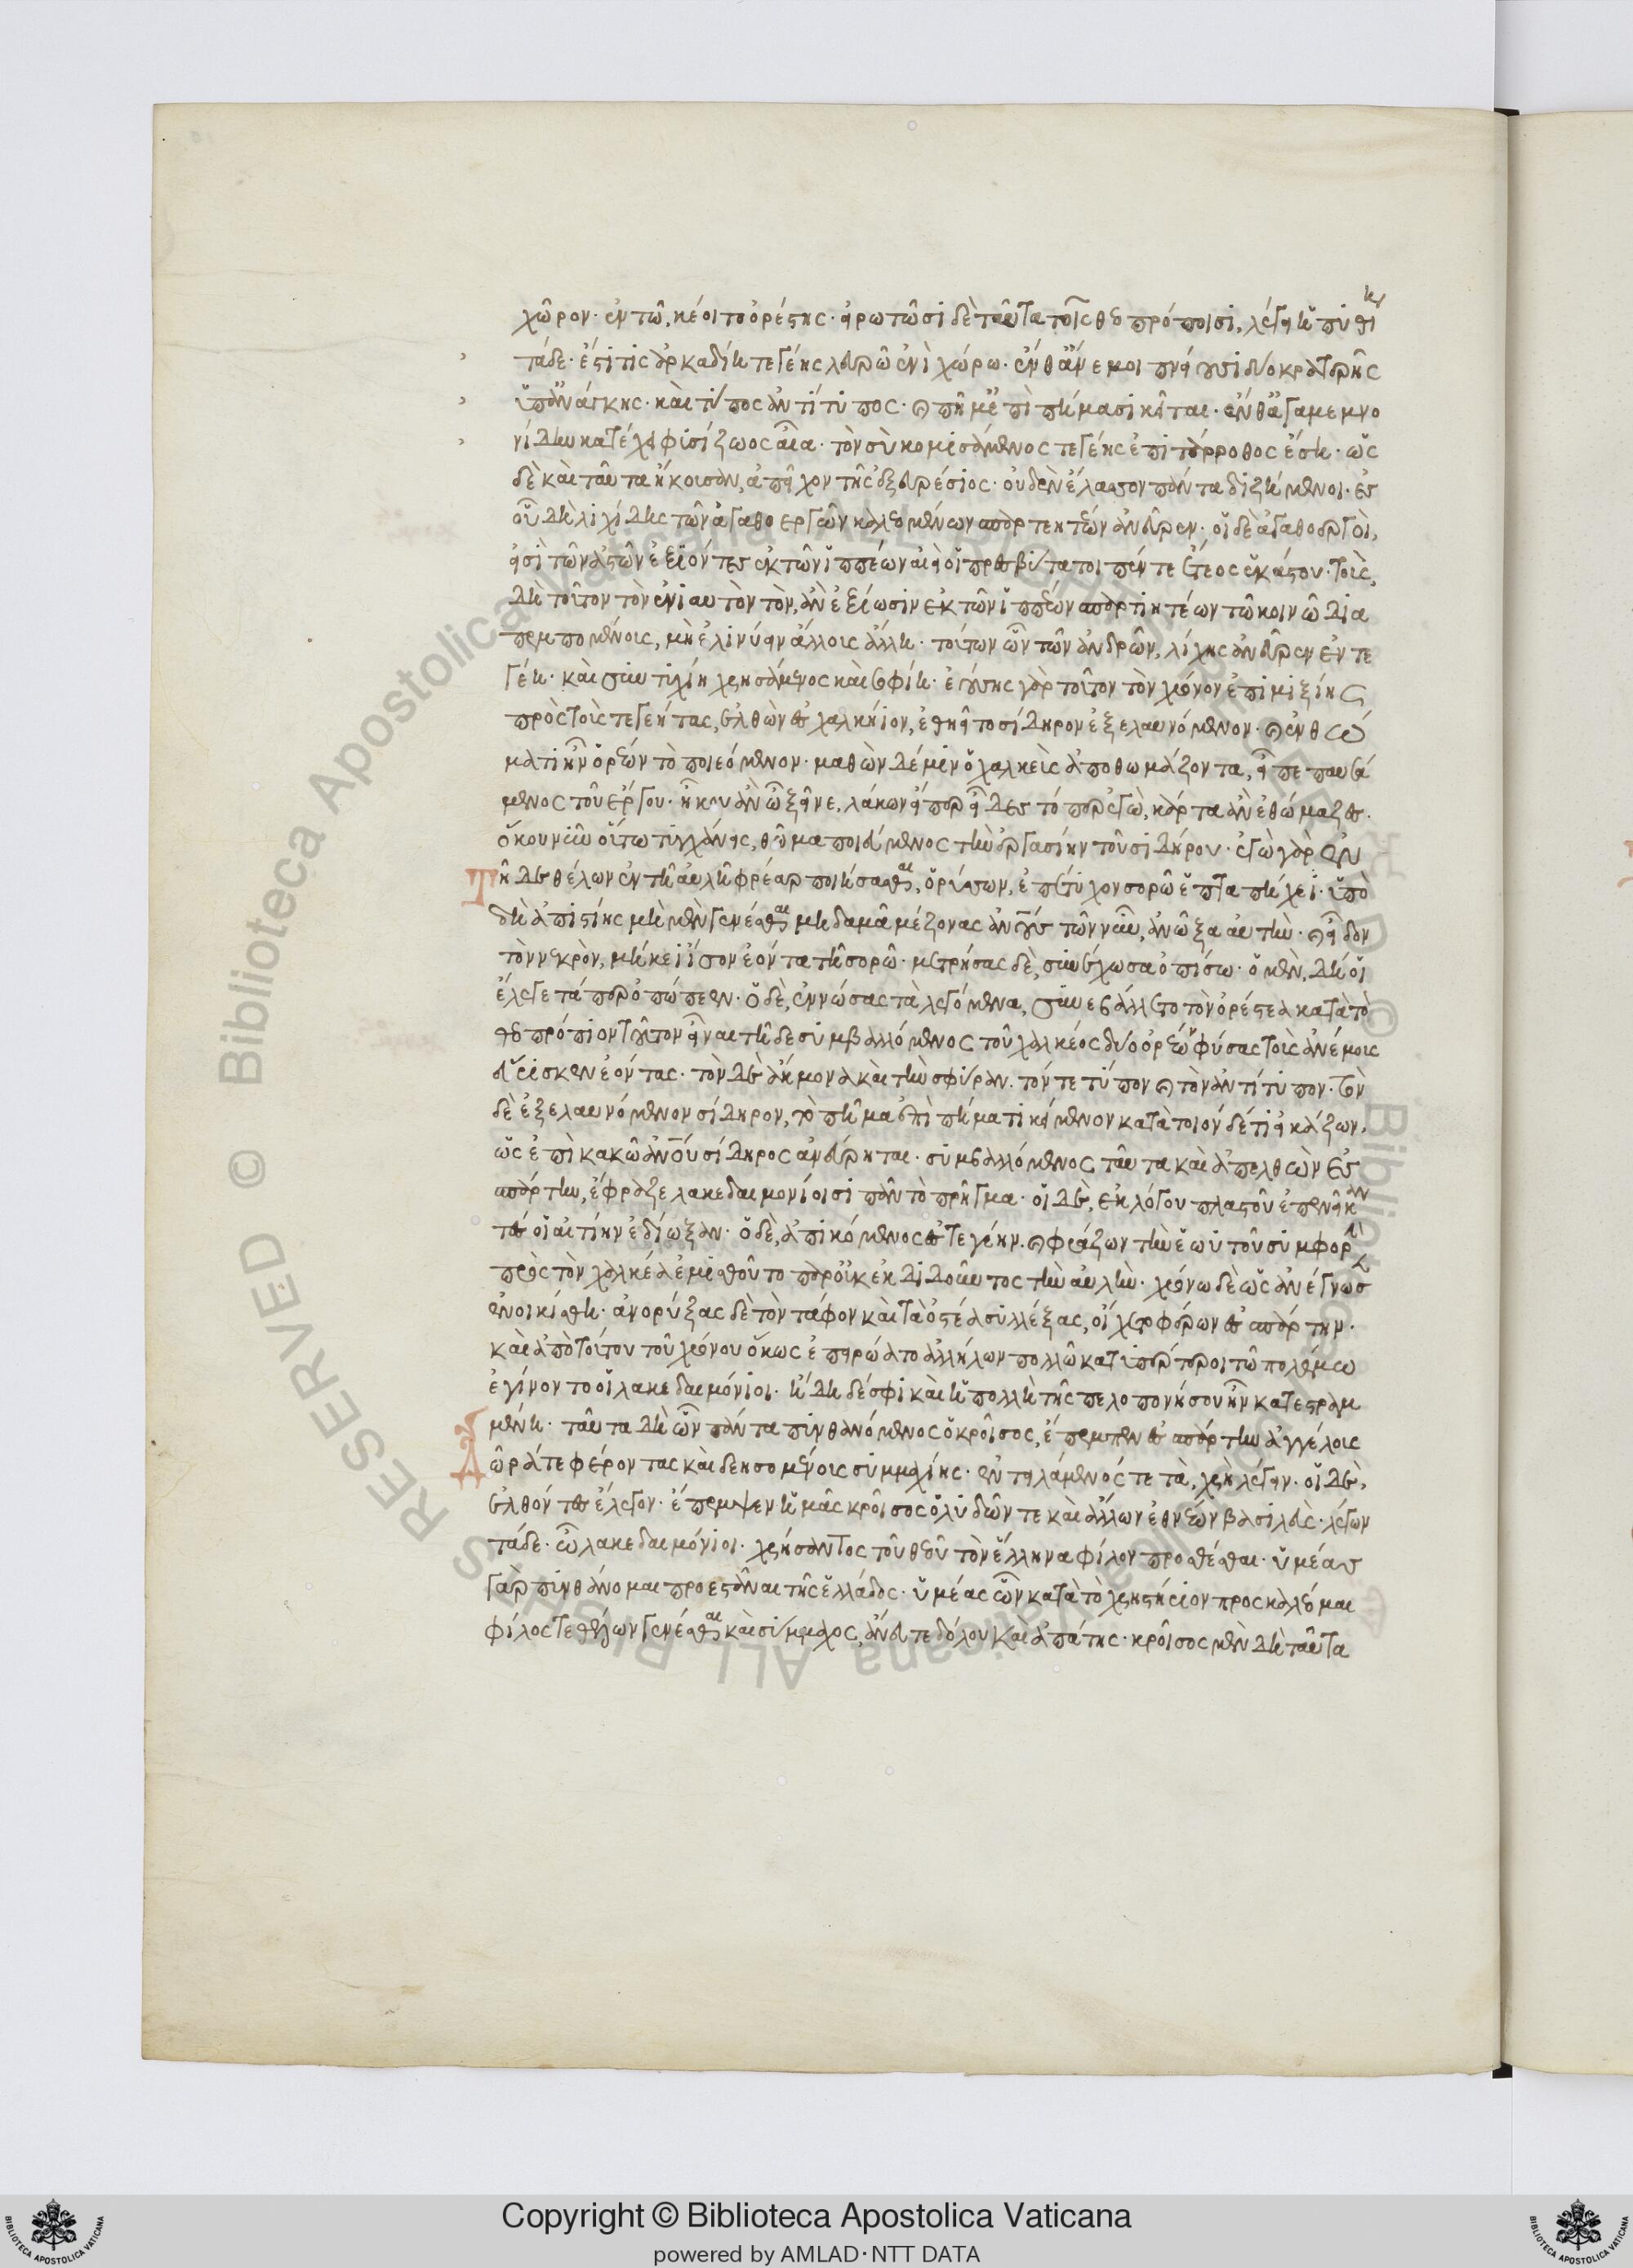 χῶρον· ἐν τῶ, κέοιτο ὀρέστης· εἰρωτῶσι δὲ ταῦτα τοῖς θεοπρόποισι, λέγει ἡ πυθίη
τάδε· ἔστι τις ἀρκαδίη τεγέης λευρῶ ἐνὶ χώρω· ἔνθ' ἄνεμοι πνείουσι δύο κρατερῆς
ὑπ' ἀνάγκης· καὶ τύπος ἀντίτυπος· καὶ πῆμ' ἐπὶ πήμασι κεῖται· ἔνθ' ἀγαμεμνο
νίδην κατέχει φυσίζωος αἶα· τὸν σὺ κομισάμενος τεγέης ἐπιτάρροθος ἔση· ὡς
δὲ καὶ ταῦτα ἤκουσαν, ἀπεῖχον τῆς ἐξευρέσιος· οὐδὲν ἔλασσον πάντα διζήμενοι· ἐς
οὗ δὴ λίχης τῶν ἀγαθοεργῶν καλεομένων σπαρτιητέων ἀνεῦρεν· οἱ δὲ ἀγαθοεργοὶ,
εἰσὶ τῶν ἀστῶν ἐξιόντες ἐκ τῶν ἱππέων αἰεὶ οἱ πρεσβύτατοι πέντε ἔτεος ἑκάστου· τοὺς
δεῖ τοῦτον τὸν ἐνιαυτὸν τὸν, ἂν ἐξίωσιν ἐκ τῶν ἱππέων σπαρτιητέων τῶ κοινῶ δια
πεμπομένους, μὴ ἐλινύειν ἄλλους ἄλλη· τούτων ὦν τῶν ἀνδρῶν, λίχης ἀνεῦρεν ἐν τε
γέη· καὶ συντυχίη χρησάμενος καὶ σοφίη· ἐούσης γὰρ τοῦτον τὸν χρόνον ἐπιμιξίης
πρὸς τοὺς τεγεήτας, ἐλθὼν ἐς χαλκήιον, ἐθηεῖτο σίδηρον ἐξελαυνόμενον· καὶ ἐν θω
ματι ἦν ὁρέων τὸ ποιεόμενον· μαθὼν δέ μιν ὁ χαλκεὺς ἀποθωμάζοντα, εἶπε παυσά
μενος τοῦ ἔργου· ἦ κου ἂν ὦ ξεῖνε, λάκων εἴπερ εἶδες τό περ ἐγὼ, κάρτα ἂν ἐθώμαζες·
ὅκου νῦν οὕτω τυγχάνεις, θῶμα ποιεύμενος τὴν ἐργασίην τοῦ σιδήρου· ἐγὼ γὰρ ἐν
τῆδε θέλων ἐν τῆ αὐλῆ φρέαρ ποιήσασθαι, ὀρύσσων, ἐπέτυχον σορῶ ἑπταπήχεϊ· ὑπὸ
δὲ ἀπιστίης μὴ μὲν γενέσθαι μηδαμὰ μέζονας ἀνθρώπους τῶν νῦν, ἄνωξα αὐτὴν· καὶ εἶδον
τὸν νεκρὸν, μήκεϊ ἴσον ἐόντα τῆ σορῶ· μετρήσας δὲ, συνέχωσα ὀπίσω· ὁ μὲν, δή οἱ
ἔλεγε τά περ ὀπώπεεν· ὁ δὲ, ἐννώσας τὰ λεγόμενα, συνεβάλλετο τὸν ὀρέστεα κατὰ τὸ
θεοπρόπιον τοῦτον εἶναι τῆδε συμβαλλόμενος τοῦ χαλκέος δύο ὁρέων φύσας τοὺς ἀνέμους
εὕρισκεν ἐόντας· τὸν δὲ ἄκμονα καὶ τὴν σφύραν· τόν τε τύπον καὶ τὸν ἀντίτυπον· τὸν
δὲ ἐξελαυνόμενον σίδηρον, τὸ πῆμα ἐπὶ πήματι κείμενον κατὰ τοιόνδέ τι εἰκάζων,
ὡς ἐπὶ κακῶ ἀνθρώπου σίδηρος ἀνεύρηται· συμβαλλόμενος ταῦτα καὶ ἀπελθὼν ἐς
σπάρτην, ἔφραζε λακεδαιμονίοισι πᾶν τὸ πρῆγμα· οἱ δὲ, ἐκ λόγου πλαστοῦ ἐπενείκαν
τές οἱ αἰτίην ἐδίωξαν· ὁ δὲ, ἀπικόμενος ἐς τεγέην· καὶ φράζων τὴν ἑωυτοῦ συμφορὴν
πρὸς τὸν χαλκέα ἐμισθοῦτο παρ' οὐκ ἐκδιδοῦντος τὴν αὐλὴν· χρόνω δὲ ὡς ἀνέγνωσε
ἐνοικίσθη· ἀνορύξας δὲ τὸν τάφον καὶ τὰ ὀστέα συλλέξας, οἴχετο φέρων ἐς σπάρτην·
καὶ ἀπὸ τούτου τοῦ χρόνου ὅκως ἐπειρώατο ἀλλήλων πολλῶ κατυπέρτεροι τῶ πολέμω
ἐγίνοντο οἱ λακεδαιμόνιοι· ἤδη δέ σφι καὶ ἡ πολλὴ τῆς πελοποννήσου ἦν κατεστραμ
μένη· ταῦτα δὴ ὦν πάντα πυνθανόμενος ὁ κροῖσος, ἔπεμπεν ἐς σπάρτην ἀγγέλους
δῶρά τε φέροντας καὶ δεησομένους συμμαχίης· ἐντειλάμενός τε τὰ, χρὴ λέγειν· οἱ δὲ,
ἐλθόντες ἔλεγον· ἔπεμψεν ἡμᾶς κροῖσος ὁ λυδῶν τε καὶ ἄλλων ἐθνέων βασιλεὺς· λέγων
τάδε· ὦ λακεδαιμόνιοι· χρήσαντος τοῦ θεοῦ τὸν ἕλληνα φίλον προσθέσθαι· ὑμέας
γὰρ πυνθάνομαι προεστάναι τῆς ἑλλάδος· ὑμέας ὦν κατὰ τὸ χρηστήριον προσκαλέομαι
φίλος τε θέλων γενέσθαι καὶ σύμμαχος, ἄνευ τε δόλου καὶ ἀπάτης· κροῖσος μὲν δὴ ταῦτα
Copyright © Biblioteca Apostolica Vaticana
powered by AMLAD·NTT DATA